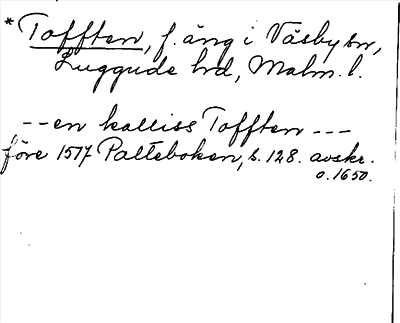 * Tofften, f. äng i Väsby sn,
Luggude hd, Malm. l.
-- en kalliss Tofften ---
före 1517 Palteboken, s. 128. avskr.
o. 1650.